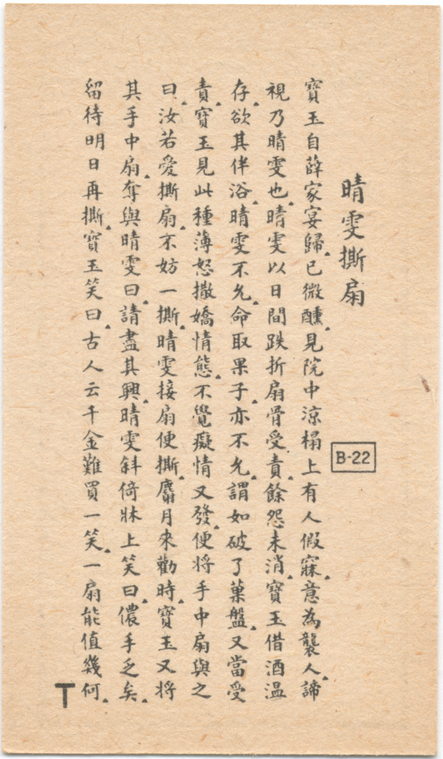 晴雯撕扇
B-22
寶玉自薛家宴歸、已微醺、見院中涼榻上有人假寐、意為襲人、諦
視乃晴雯也、晴雯以日間跌折扇骨受責、餘怨未消、寶玉借酒溫
存、欲其伴浴、晴雯不允、命取果子、亦不允、謂如破了菓盤、又當受
責、寶玉見此種薄怒撒嬌情態、不覺癡情又發、便將手中扇與之
曰、汝若愛撕扇、不妨一撕、晴雯接扇便撕、麝月來勸時、寶玉又將
其手中扇、奪與晴雯曰、請盡其興、晴雯斜倚牀上笑曰、儂手乏矣、
留待明日再撕、寶玉笑曰、古人云千金難買一笑、一扇能值幾何、
T